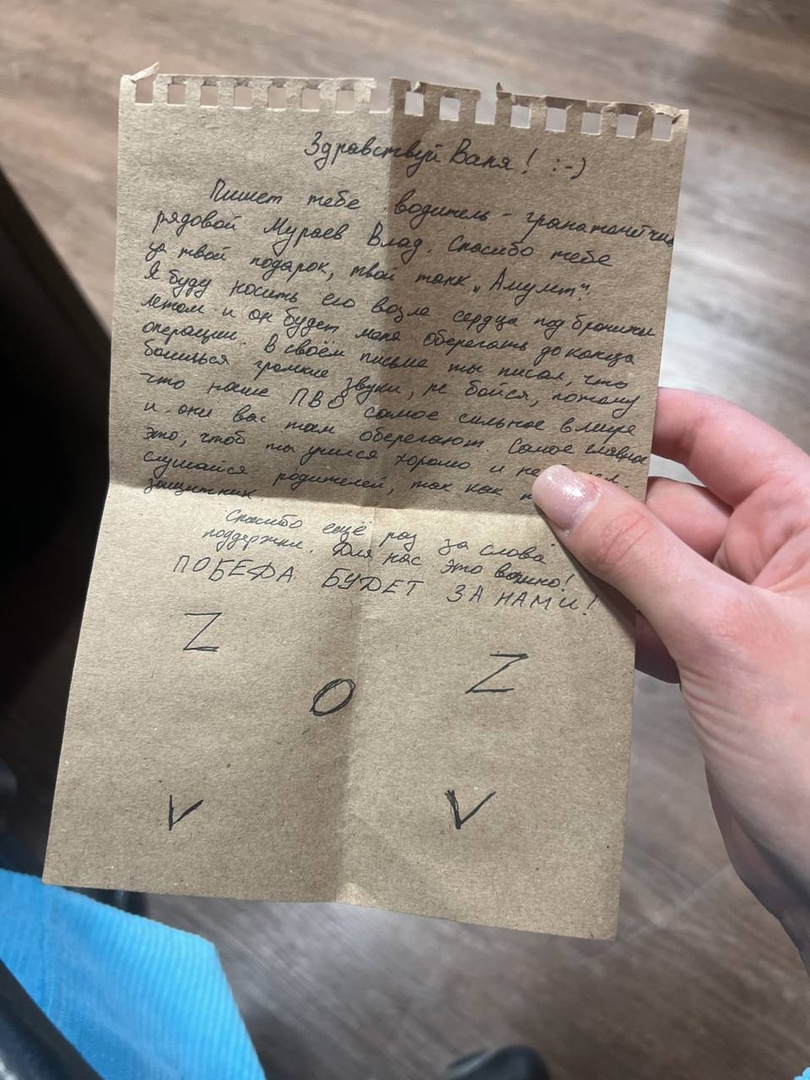 Здравствуй Ваня! :-)
Пишет тебе водитель - гранатомётчик
рядовой Мураев Влад. Спасибо тебе
за твой подарок, твой танк „Амулет“.
Я буду носить его возле сердца под бронижи
летом и он будет меня оберегать до конца
операции. В своём письме ты писал, что
боишься громкие звуки, не бойся, потому
что наше ПВО самое сильное в мире
и они вас там оберегают. Самое главное
это, чтоб ты учился хорошо и не
слушайся родителей, так как
защитник
Спасибо ещё раз за слова
поддержки. Для нас это важно!
ПОБЕДА БУДЕТ ЗА НАМИ!
Z Z
O
V V